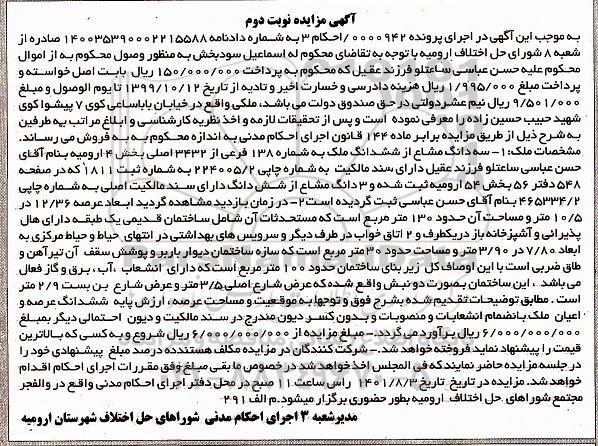 آگهی مزایده نوبت دوم
به موجب این آگهی در اجرای پرونده ۰۰۰۰۹۴۲/احکام ۳ به شماره دادنامه ۱۴۰۰۳۵۳۹۰۰۰۲۲۱۵۵۸۸ صادره از
شعبه ۸ شورای حل اختلاف ارومیه با توجه به تقاضای محکوم له اسماعیل سودبخش به منظور وصول محکوم به از اموال
محکوم علیه حسن عباسی ساعتلو فرزند عقیل که محکوم به پرداخت ۱۵۰/۰۰۰/۰۰۰ ریال بابت اصل خواسته و
پرداخت مبلغ ۱/۹۹۵/۰۰۰ ریال هزینه دادرسی و خسارت اخیر و تادیه از تاریخ ۱۳۹۹/۱۰/۱۲ تا یوم الوصول و مبلغ
۹/۵۰۱/۰۰۰ ریال نیم عشر دولتی در حق صندوق دولت می باشد، ملکی واقع در خیابان باباساعی کوی ۷ پیشوا کوی
شهید حبیب حسین زاده را معرفی نموده است و پس از تحقیقات لازمه و اخذ نظریه کارشناسی و ابلاغ مراتب به طرفین
به شرح ذیل از طریق مزایده برابر ماده ۱۴۴ قانون اجرای احکام مدنی به اندازه محکوم به به فروش می رساند.
مشخصات ملک: ۱- سه دانگ مشاع از ششدانگ ملک به شماره ۱۳۸ فرعی از ۳۴۳۲ اصلی بخش ۴ ارومیه بنام آقای
حسن عباسی ساعتلو فرزند عقیل دارای سند مالکیت به شماره چاپی ۲۲۴۰۰۵/۲ به شماره ثبت ۱۸۱۱ که در صفحه
۵۴۸ دفتر ۵۶ بخش ۵۴ ارومیه ثبت شده و ۳ دانگ مشاع از شش دانگ دارای سند مالکیت اصلی به شماره چاپی
۴۶۵۳۳۴/۲ بنام آقای حسن عباسی ثبت گردیده است ۲- در زمان بازدید مشاهده گردید ابعاد عرصه ۱۲/۳۶ در
۱۰/۵ متر و مساحت آن حدود ۱۳۰ متر مربع است که مستحدثات آن شامل ساختمان قدیمی یک طبقه دارای هال
پذیرایی و آشپزخانه باز دریکطرف و ۲ اتاق خواب در طرف دیگر و سرویس های بهداشتی در انتهای حیاط و حیاط مرکزی به
ابعاد ۷/۸۰ در ۳/۹۰ متر و مساحت حدود ۳۰ متر مربع است که سازه ساختمان دیوار باربر و پوشش سقف آن تیرآهن و
طاق ضربی است با این اوصاف کل زیر بنای ساختمان حدود ۱۰۰ متر مربع است که دارای انشعاب ،آب ، برق و گاز فعال
می باشد ، این ساختمان بصورت دو نبش واقع شده که عرض شارع اصلی ۳/۵ متر و عرض شارع بن بست ۲/۹ متر
است . مطابق توضیحات تقدیم شده بشرح فوق و توجها به موقعیت و مساحت عرصه ، ارزش پایه ششدانگ عرصه و
اعیان ملک بانضمام انشعابات و منصوبات و بدون کسر دیون مندرج در سند مالکیت و دیون احتمالی دیگر بمبلغ
۶/۰۰۰/۰۰۰/۰۰۰ ریال برآورد می گردد.- مبلغ مزایده از ۶/۰۰۰/۰۰۰/۰۰۰ ریال شروع و به کسی که بالاترین
قیمت را پیشنهاد نماید فروخته خواهد شد.- شرکت کنندگان در مزایده مکلف هستند ده درصد مبلغ پیشنهادی خود را
در جلسه مزایده حاضر نمایند که فی المجلس اخذ خواهد شد در خصوص مابقی مبلغ وفق مقررات اجرای احکام اقدام
خواهد شد. مزایده در تاریخ تاریخ ۱۴۰۱/۸/۳ راس ساعت ۱۱ صبح در محل دفتر اجرای احکام مدنی واقع در والفجر
مجتمع شوراهای حل اختلاف ارومیه بطور حضوری برگزار میشود.م الف ۲۹۱
مدیر شعبه ۳ اجرای احکام مدنی شوراهای حل اختلاف شهرستان ارومیه